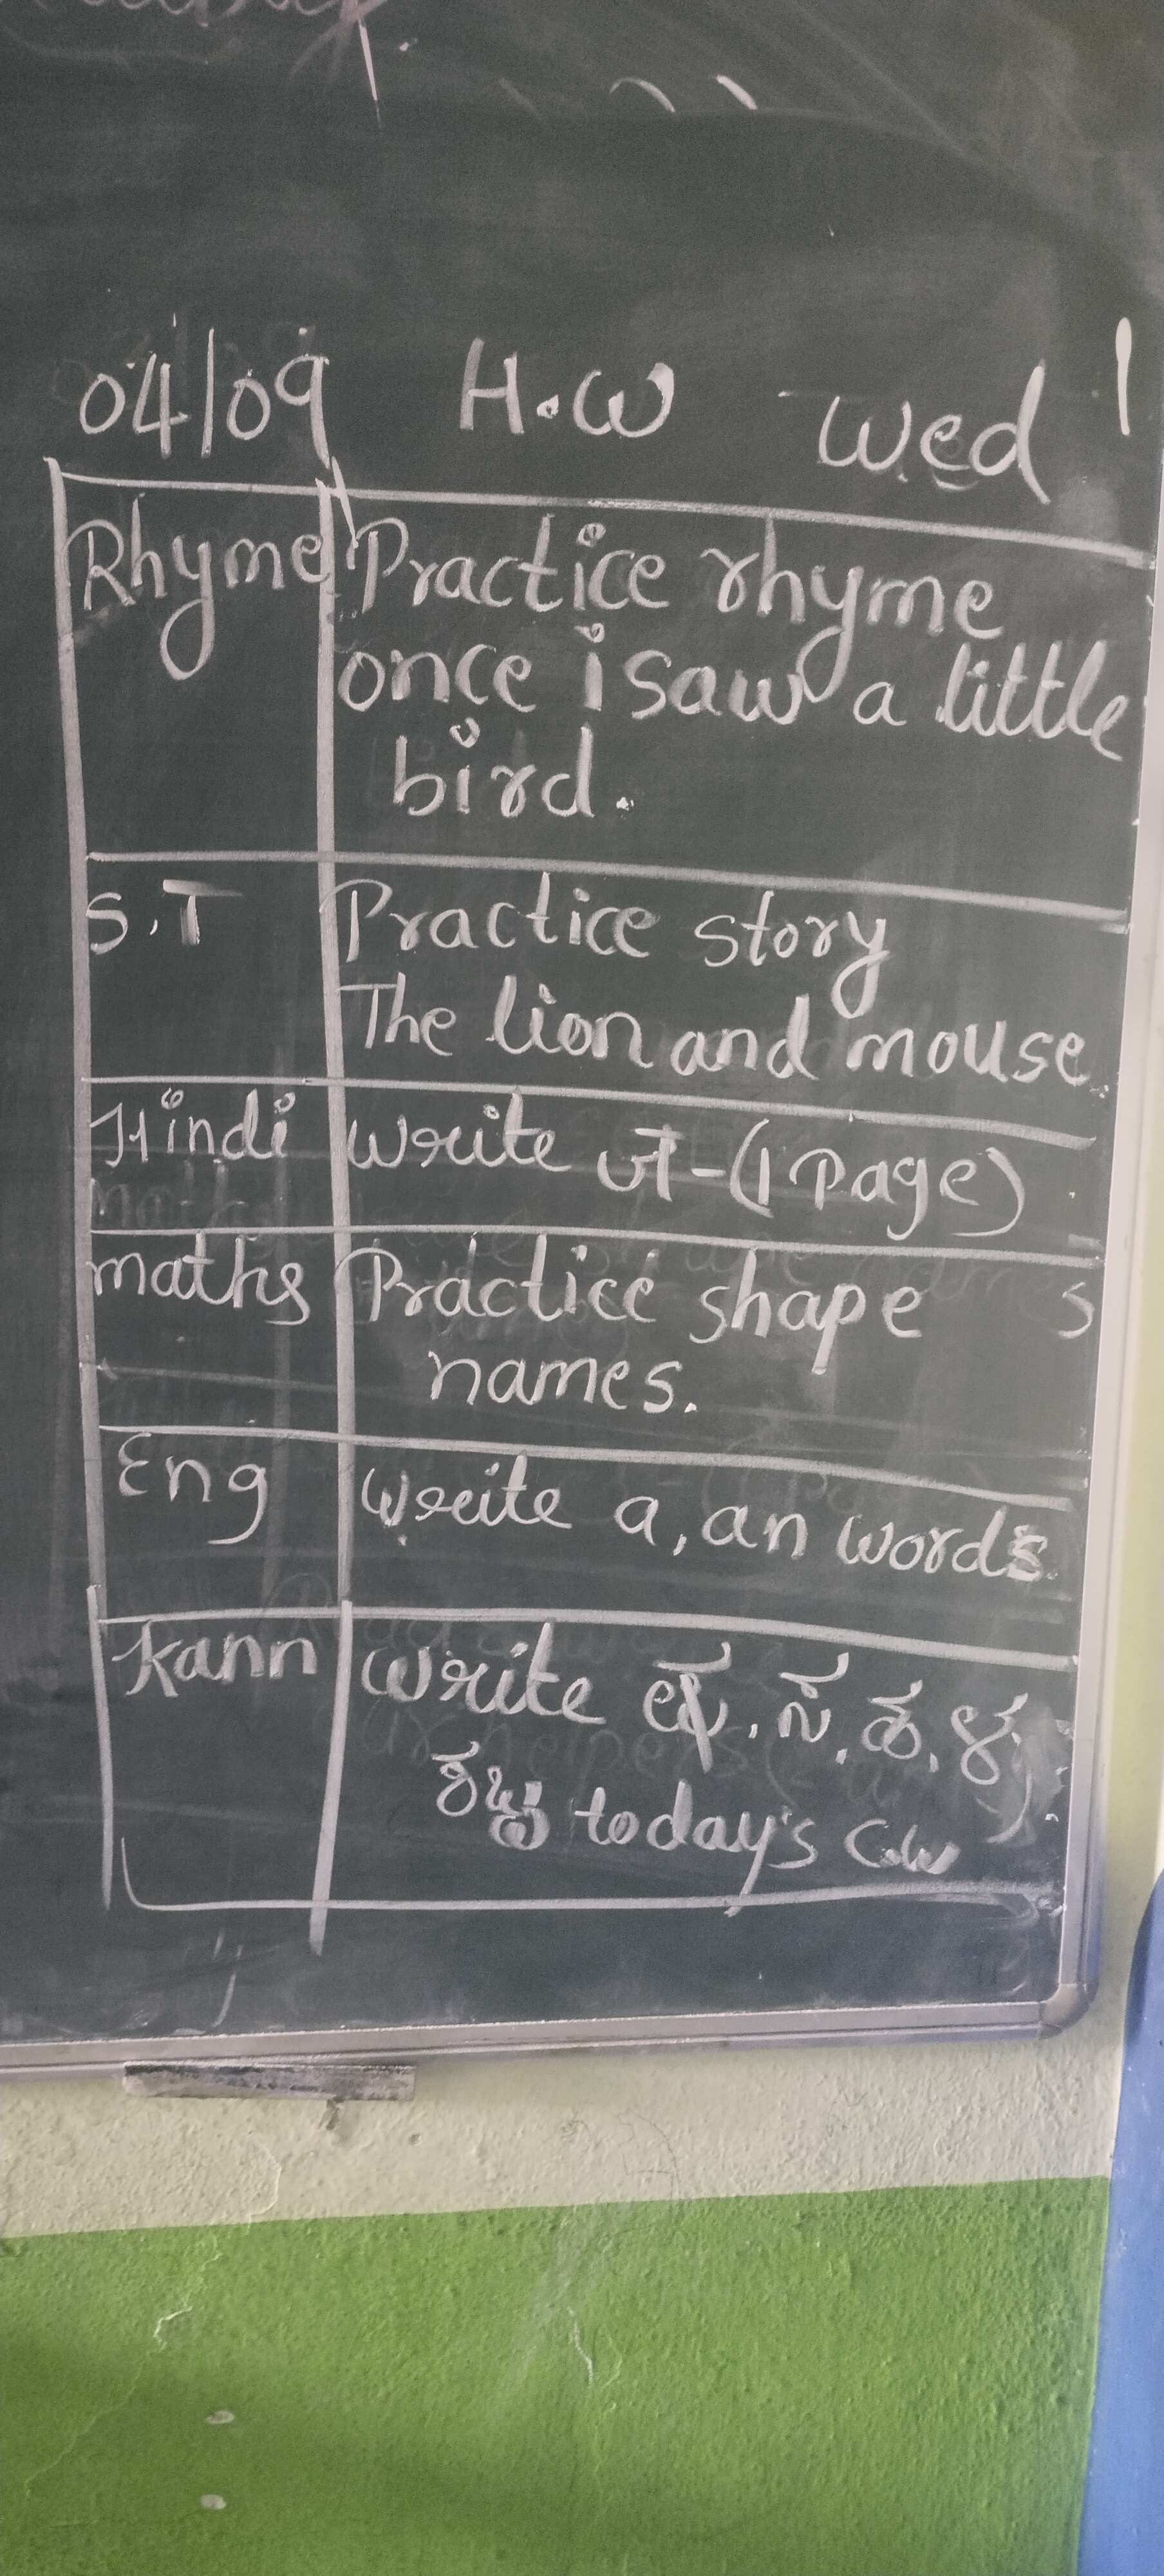 04/09 H.W Wed
Rhyme Practice rhyme
once i saw a little
bird.
S.T Practice story
The lion and mouse.
Hindi write ज-(1 Page)
maths Practice shape
names.
Eng write a, an words.
Kann write ಷ, ಸ, ಹ, ಳ,
today's C.W